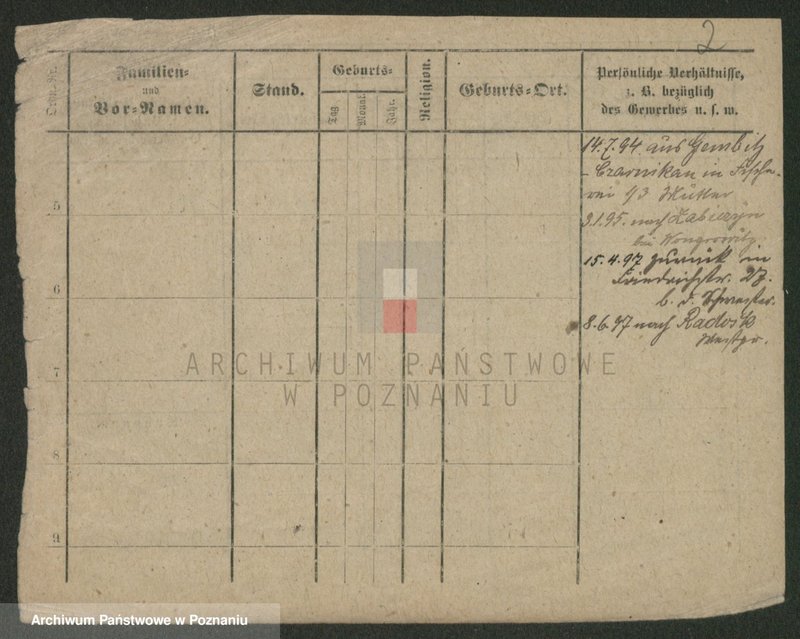 2
Ordn.-Nr.
Familien-
und
Vor-Namen.
Stand.
Geburts-
Tag
Monat
Jahr.
Religion.
Geburts-Ort.
Persönliche Verhältnisse,
z. B. bezüglich
des Gewerbes u. s. w.
14.7.94 aus Gembitz
- Czarnikau in Fische-
rei 43 Mutter
3.1.95. nach Zabiczyn
bei Wongrowitz
15.4.97 zurück in
Friedrichstr. 27.
b. d. Schwester.
8.6.97 nach Radosk
Westpr.
5
6
7
8
9
ARCHIWUM PAŃSTWOWE
W POZNANIU
Archiwum Państwowe w Poznaniu